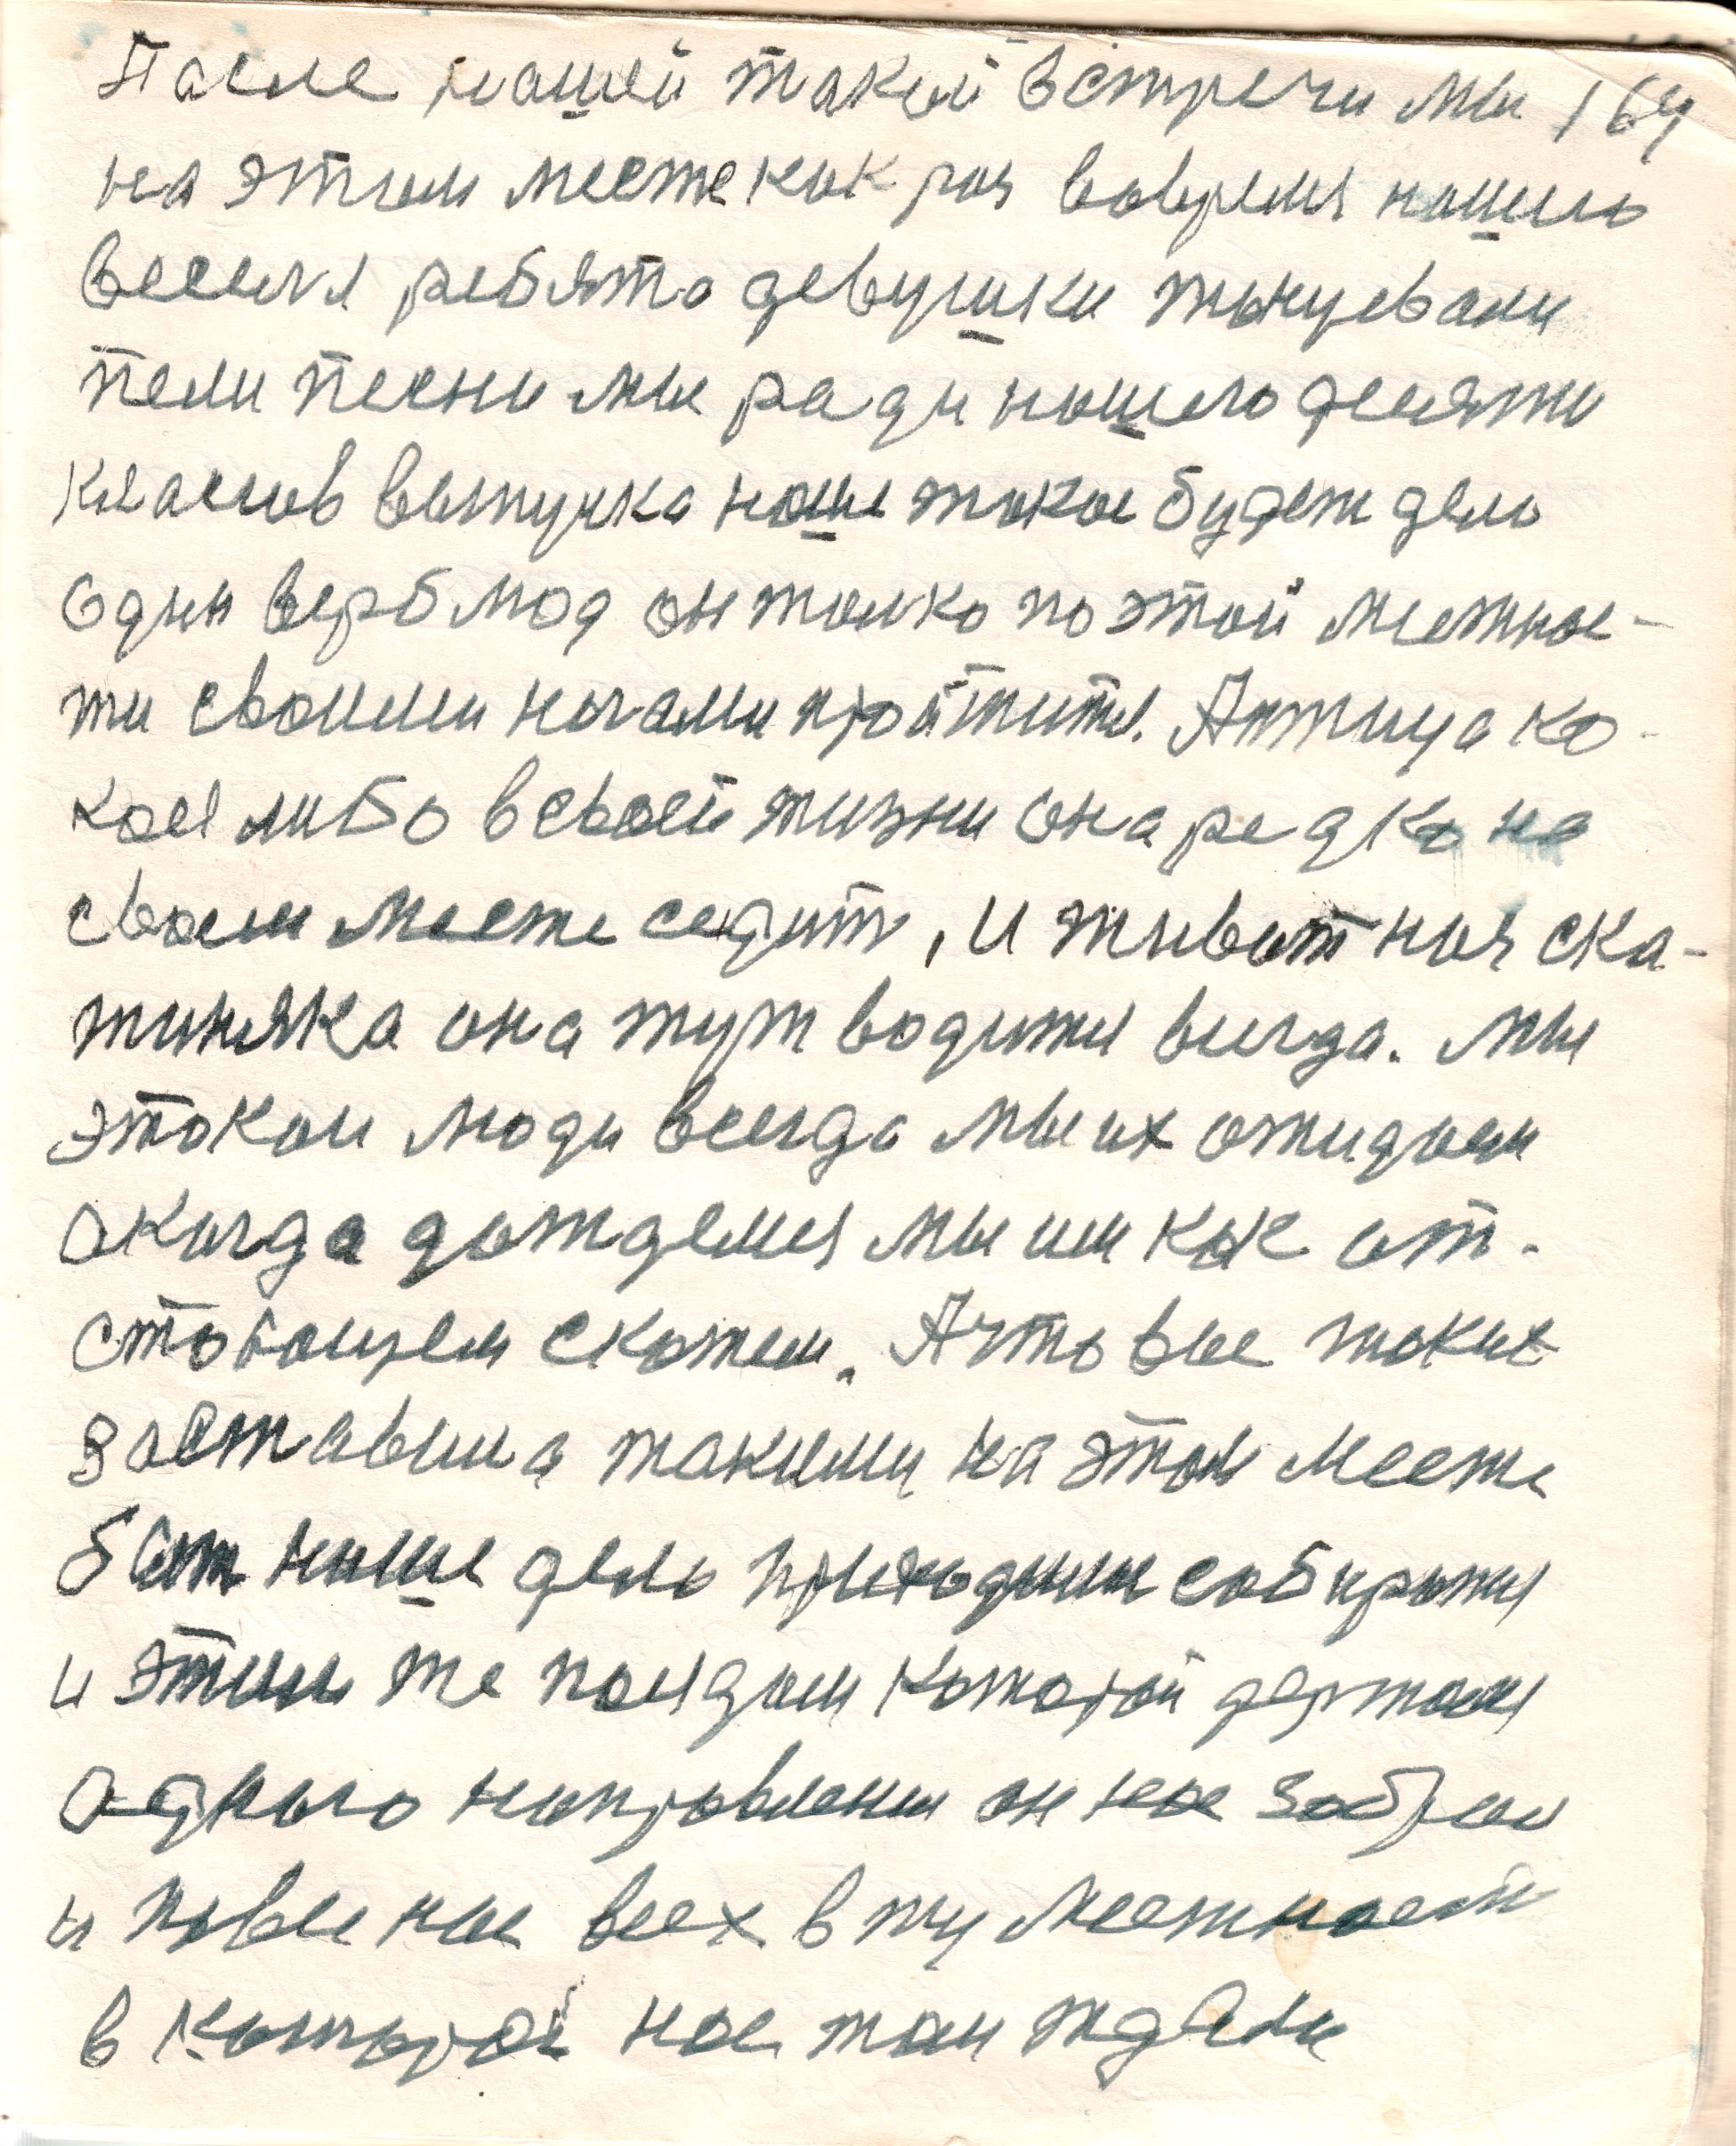 После нашей такой встречи мы 164
на этом месте как раз вовремя нашего
веселя ребята девушки танцевали
пели песни мы ради нашего десяти
классов выпуска наше такое будет дело
один верблюд он толко по этой местнос-
ти своими ногами пройтится. А птица ка-
кая либо в своей жизни она редко на
своем месте седит, и животная ска-
тиняка она тут водится всегда. Мы
этакои люди всегда мы их ожидаем
а когда дождемся мы им как от-
стоющем скажем. А что вас таких
заставила такими на этом месте
быть наше дело приходим собиратся
и этим же поездом которой держал
одного направлении он нас забрал
и повез нас всех в ту местност
в которой нас там ждали